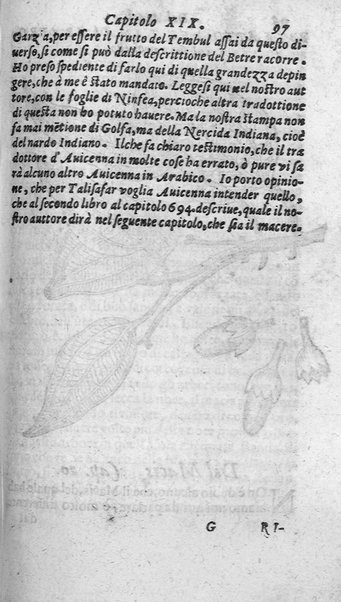 Capitolo XIX. 97
Garz'a, per essere il frutto del Tembul assai da questo di-
uerso, si come si può dalla descrittione del Betre racorre.
Ho preso spediente di farlo qui di quella grandezza depin
gere, che à me è stato mandato. Leggesi qui nel nostro aut
tore, con le foglie di Ninfea, percioche altra tradottione
di questa non ho potuto hauere. Ma la nostra stampa non
fa mai mẽtione di Golfa, ma della Nercida Indiana, cioè
del nardo Indiano. Ilche fa chiaro testimonio, che il tra
dottore d'Auicenna in molte cose ha errato, ò pure vi sa
rà alcuno altro Auicenna in Arabico. Io porto opinio-
ne, che per Talisafar voglia Auicenna intender quello,
che al secondo libro al capitolo 694. descriue, quale il no-
stro auttore dirà nel seguente capitolo, che sia il macere.
G RI-